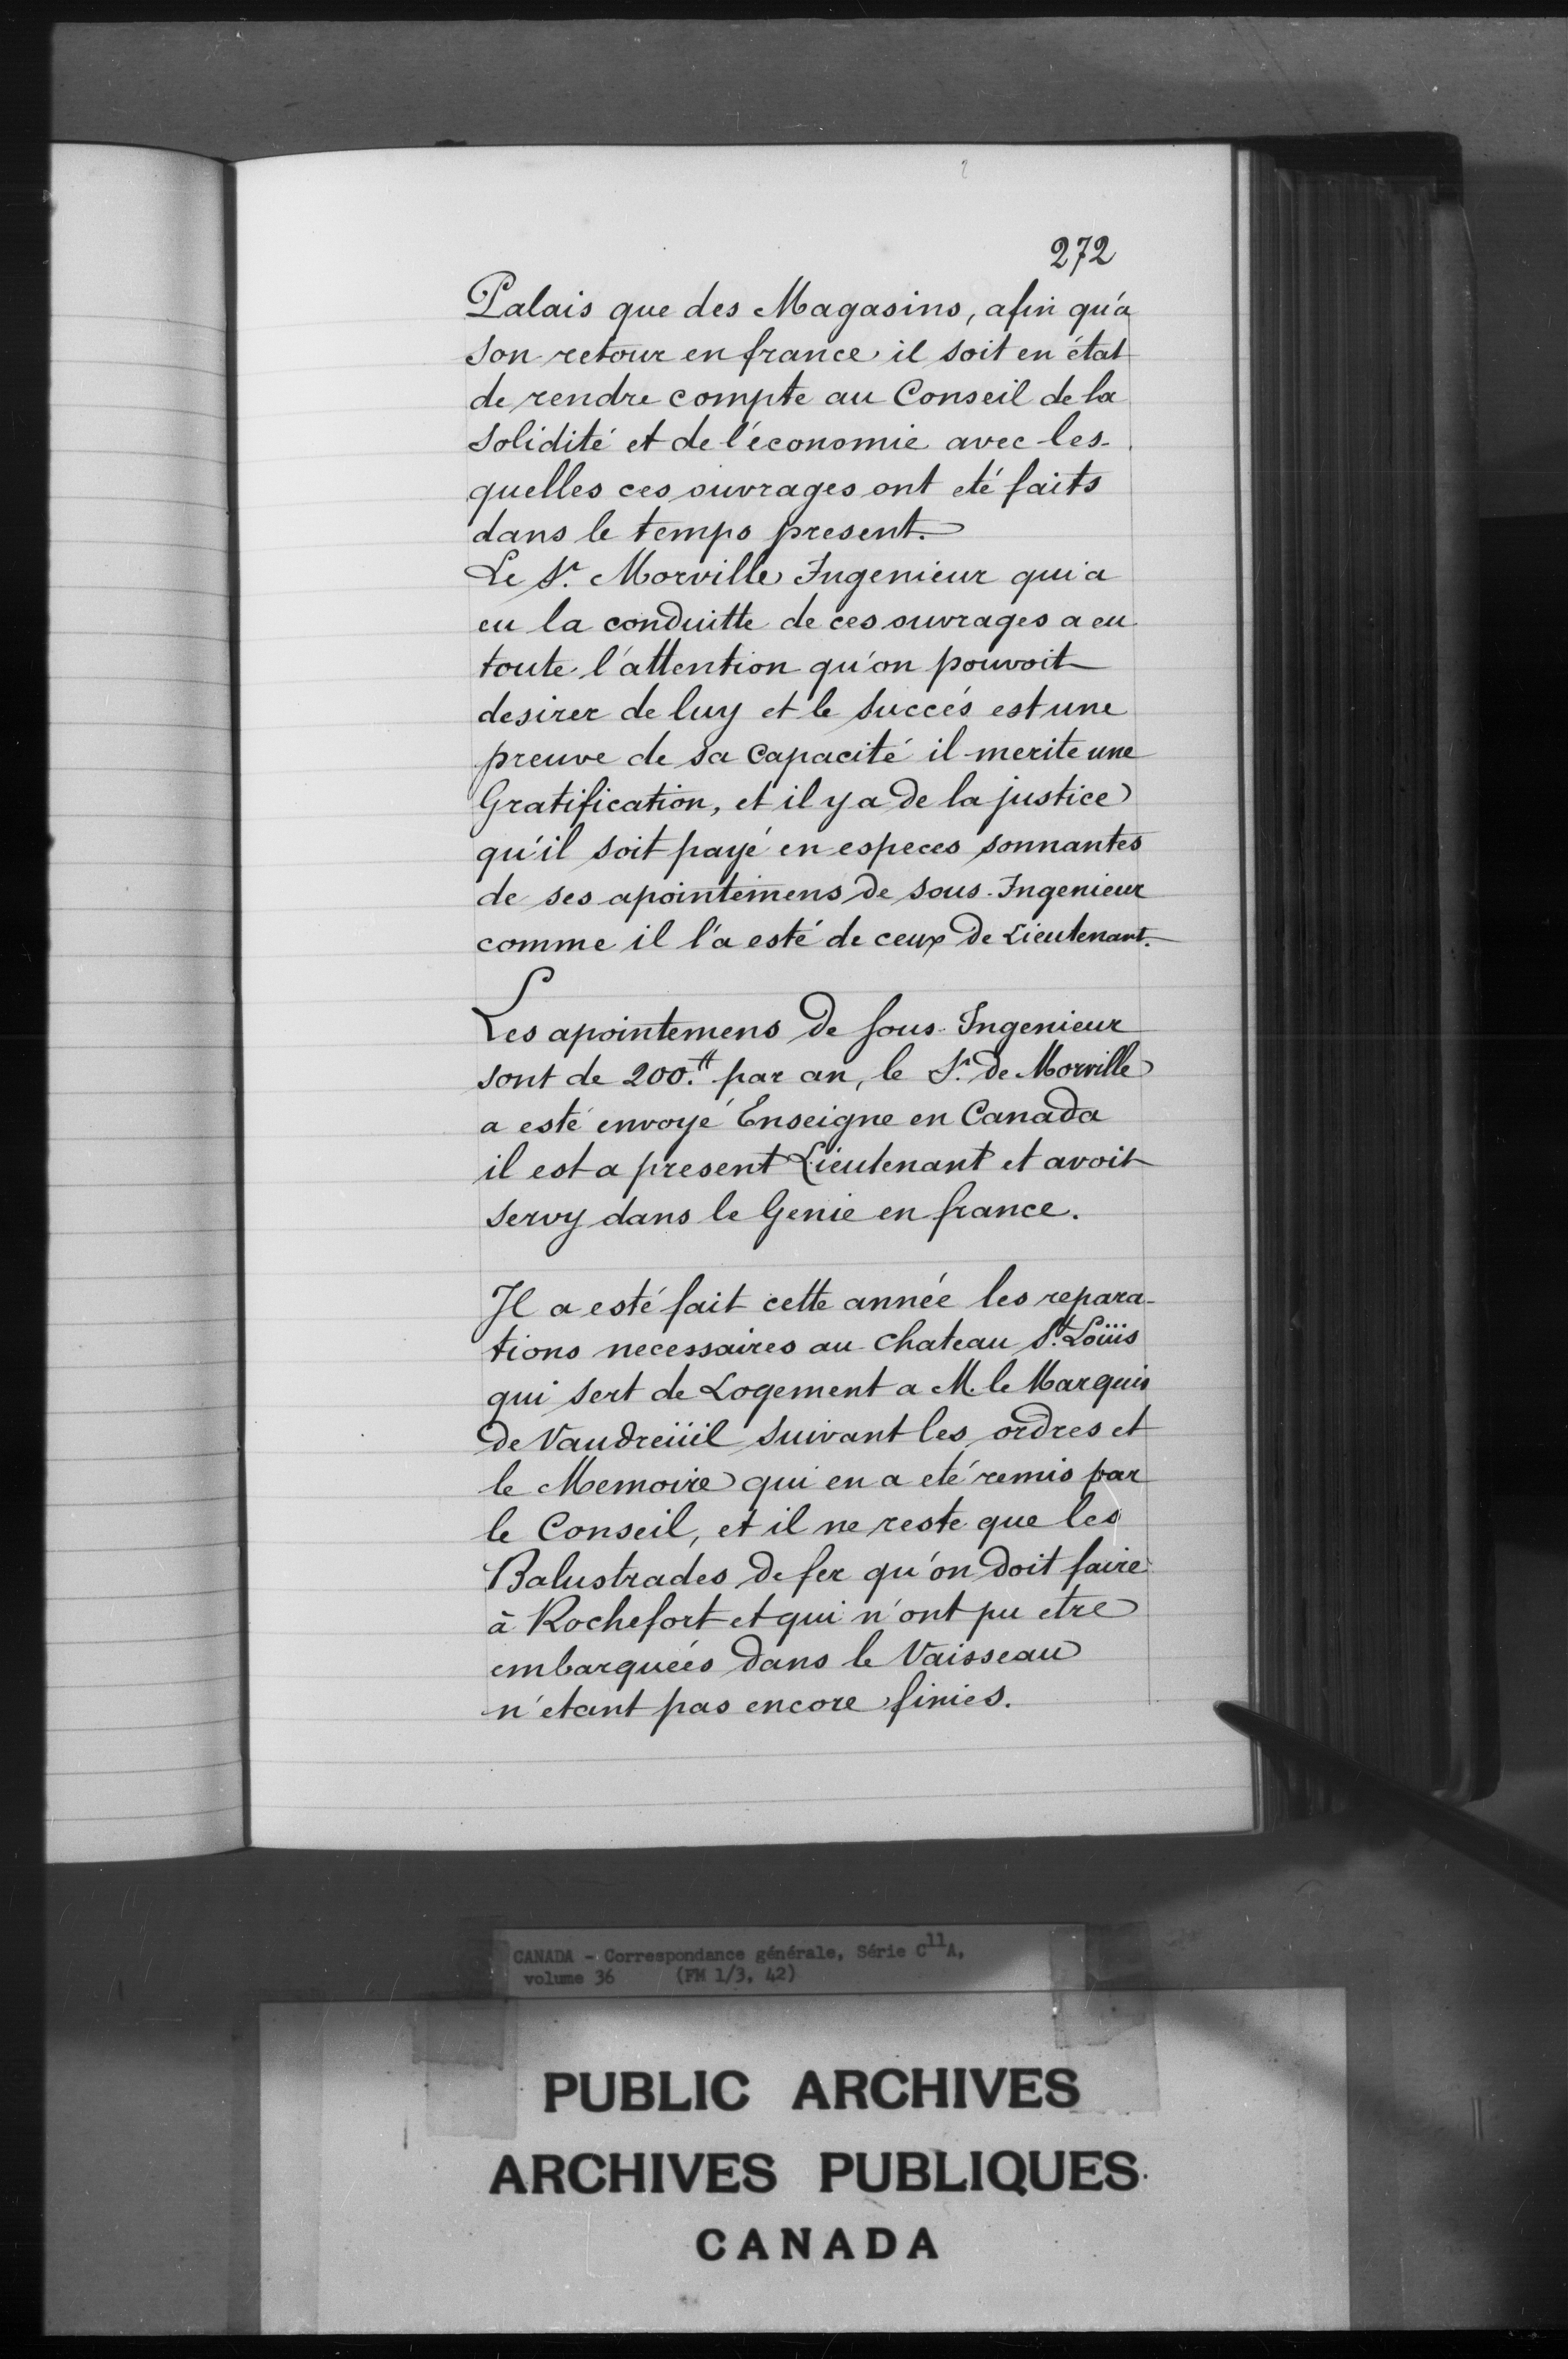 272
Palais que des Magasins, afin qu'a
son retour en france il soit en état
de rendre compte au Conseil de la
Solidité et de l'économie avec les-
quelles ces ouvrages ont eté faits
dans le temps present.
Le Sr. Morville Ingenieur qui a
eu la conduitte de ces ouvrages a eu
toute l'attention qu'on pouvoit
desirer de luy et le succés est une
preuve de sa capacité il merite une
Gratification, et il y a de la justice
qu'il soit payé en especes sonnantes
de ses apointemens de sous-Ingenieur
comme il l'a esté de ceux de Lieutenant.
Les apointemens de sous-Ingenieur
sont de 200.tt par an, le Sr. de Morville
a esté envoyé Enseigne en Canada
il est a present Lieutenant et avoit
servy dans le Genie en france.
Il a esté fait cette année les repara-
tions necessaires au chateau St. Loüis
qui sert de Logement a M. le Marquis
de Vaudreüil suivant les ordres et
le Memoire qui en a eté remis par
le Conseil, et il ne reste que les
Balustrades de fer qu'on doit faire
à Rochefort et qui n'ont pu etre
embarquées dans le Vaisseau
n'etant pas encore finies.
CANADA - Correspondance générale, Série C11A,
volume 36 (FM 1/3, 42)
PUBLIC ARCHIVES
ARCHIVES PUBLIQUES
CANADA